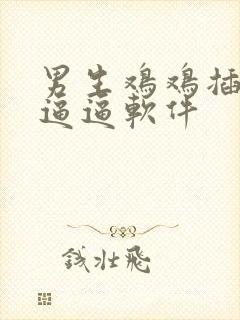 男生鸡鸡插
逼逼软件
钱壮飛